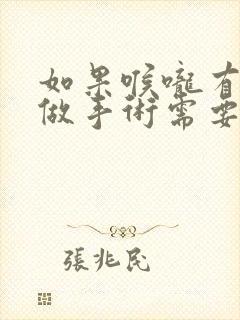 如果喉嚨有
做手術需要
張兆民